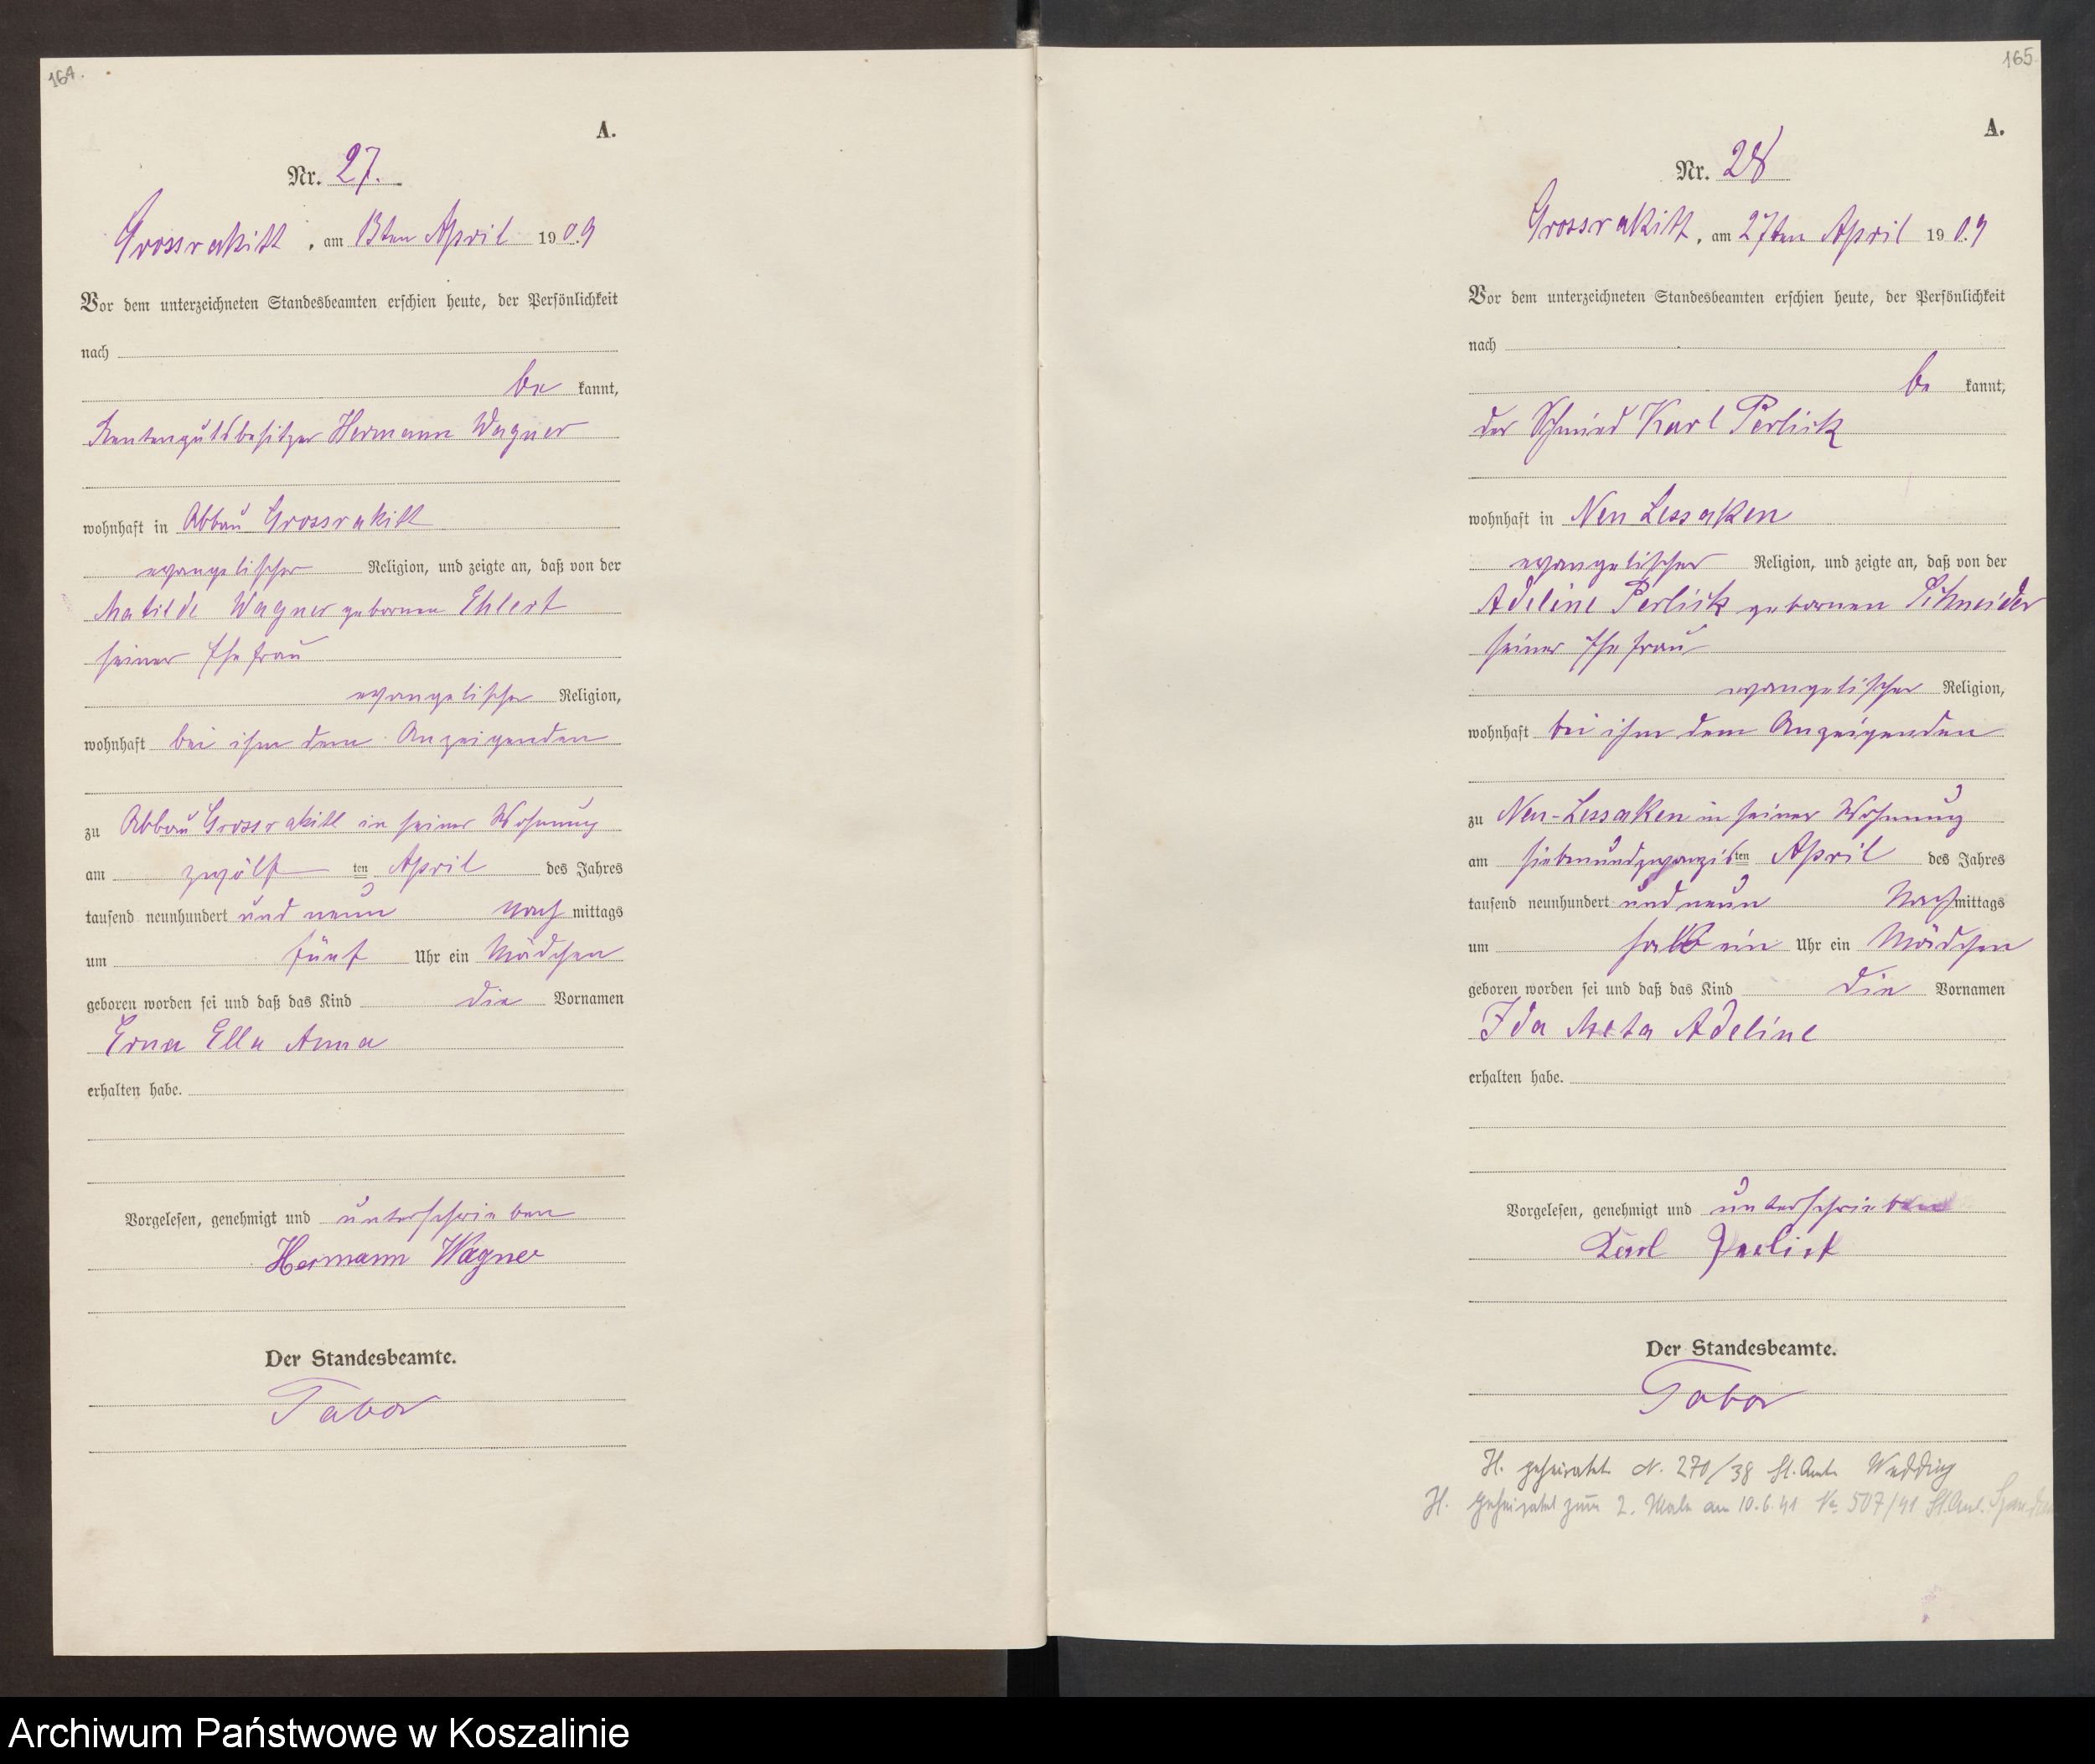 164.
A.
Nr. 27.
Grossrakitt, am 13ten April 1909
Vor dem unterzeichneten Standesbeamten erschien heute, der Persönlichkeit
nach
be kannt,
Rentengutsbesitzer Hermann Wagner
wohnhaft in Abbau Grossrakitt
evangelischer Religion, und zeigte an, daß von der
Matilde Wagner gebornen Ehlert
seiner Ehefrau
evangelischer Religion,
wohnhaft bei ihm dem Anzeigenden
zu Abbau Grossrakitt in seiner Wohnung
am zwölf ten April des Jahres
tausend neunhundert und neun Nach mittags
um fünf Uhr ein Mädchen
geboren worden sei und daß das Kind die Vornamen
Erna Ella Anna
erhalten habe.
Vorgelesen, genehmigt und unterschrieben
Hermann Wagner
Der Standesbeamte.
Tabor
165
A.
Nr. 28
Grossrakitt, am 27ten April 1909
Vor dem unterzeichneten Standesbeamten erschien heute, der Persönlichkeit
nach
be kannt,
der Schmied Karl Perlick
wohnhaft in Neu Lessaken
evangelischer Religion, und zeigte an, daß von der
Adeline Perlick gebornen Schneider
seiner Ehefrau
evangelischer Religion,
wohnhaft bei ihm dem Anzeigenden
zu Neu-Lessaken in seiner Wohnung
am siebenundzwanzigsten April des Jahres
tausend neunhundert und neun Nachmittags
um halb ein Uhr ein Mädchen
geboren worden sei und daß das Kind die Vornamen
Ida Meta Adeline
erhalten habe.
Vorgelesen, genehmigt und unterschrieben
Karl Perlick
Der Standesbeamte.
Tabor
H. geheiratet N. 270/38 St. Amt Wedding
H. Geheiratet zum 2. Male am 10.6.41 Nr. 507/41 St. Amt. Spandau
Archiwum Państwowe w Koszalinie